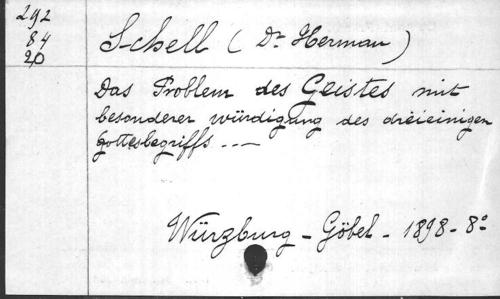 292
84
20
Schell (Dr Herman)
Das Problem des Geistes mit
besonderer würdigung des dreieinigen
gottesbegriffs ...—
Würzburg - Göbel - 1898 - 8°